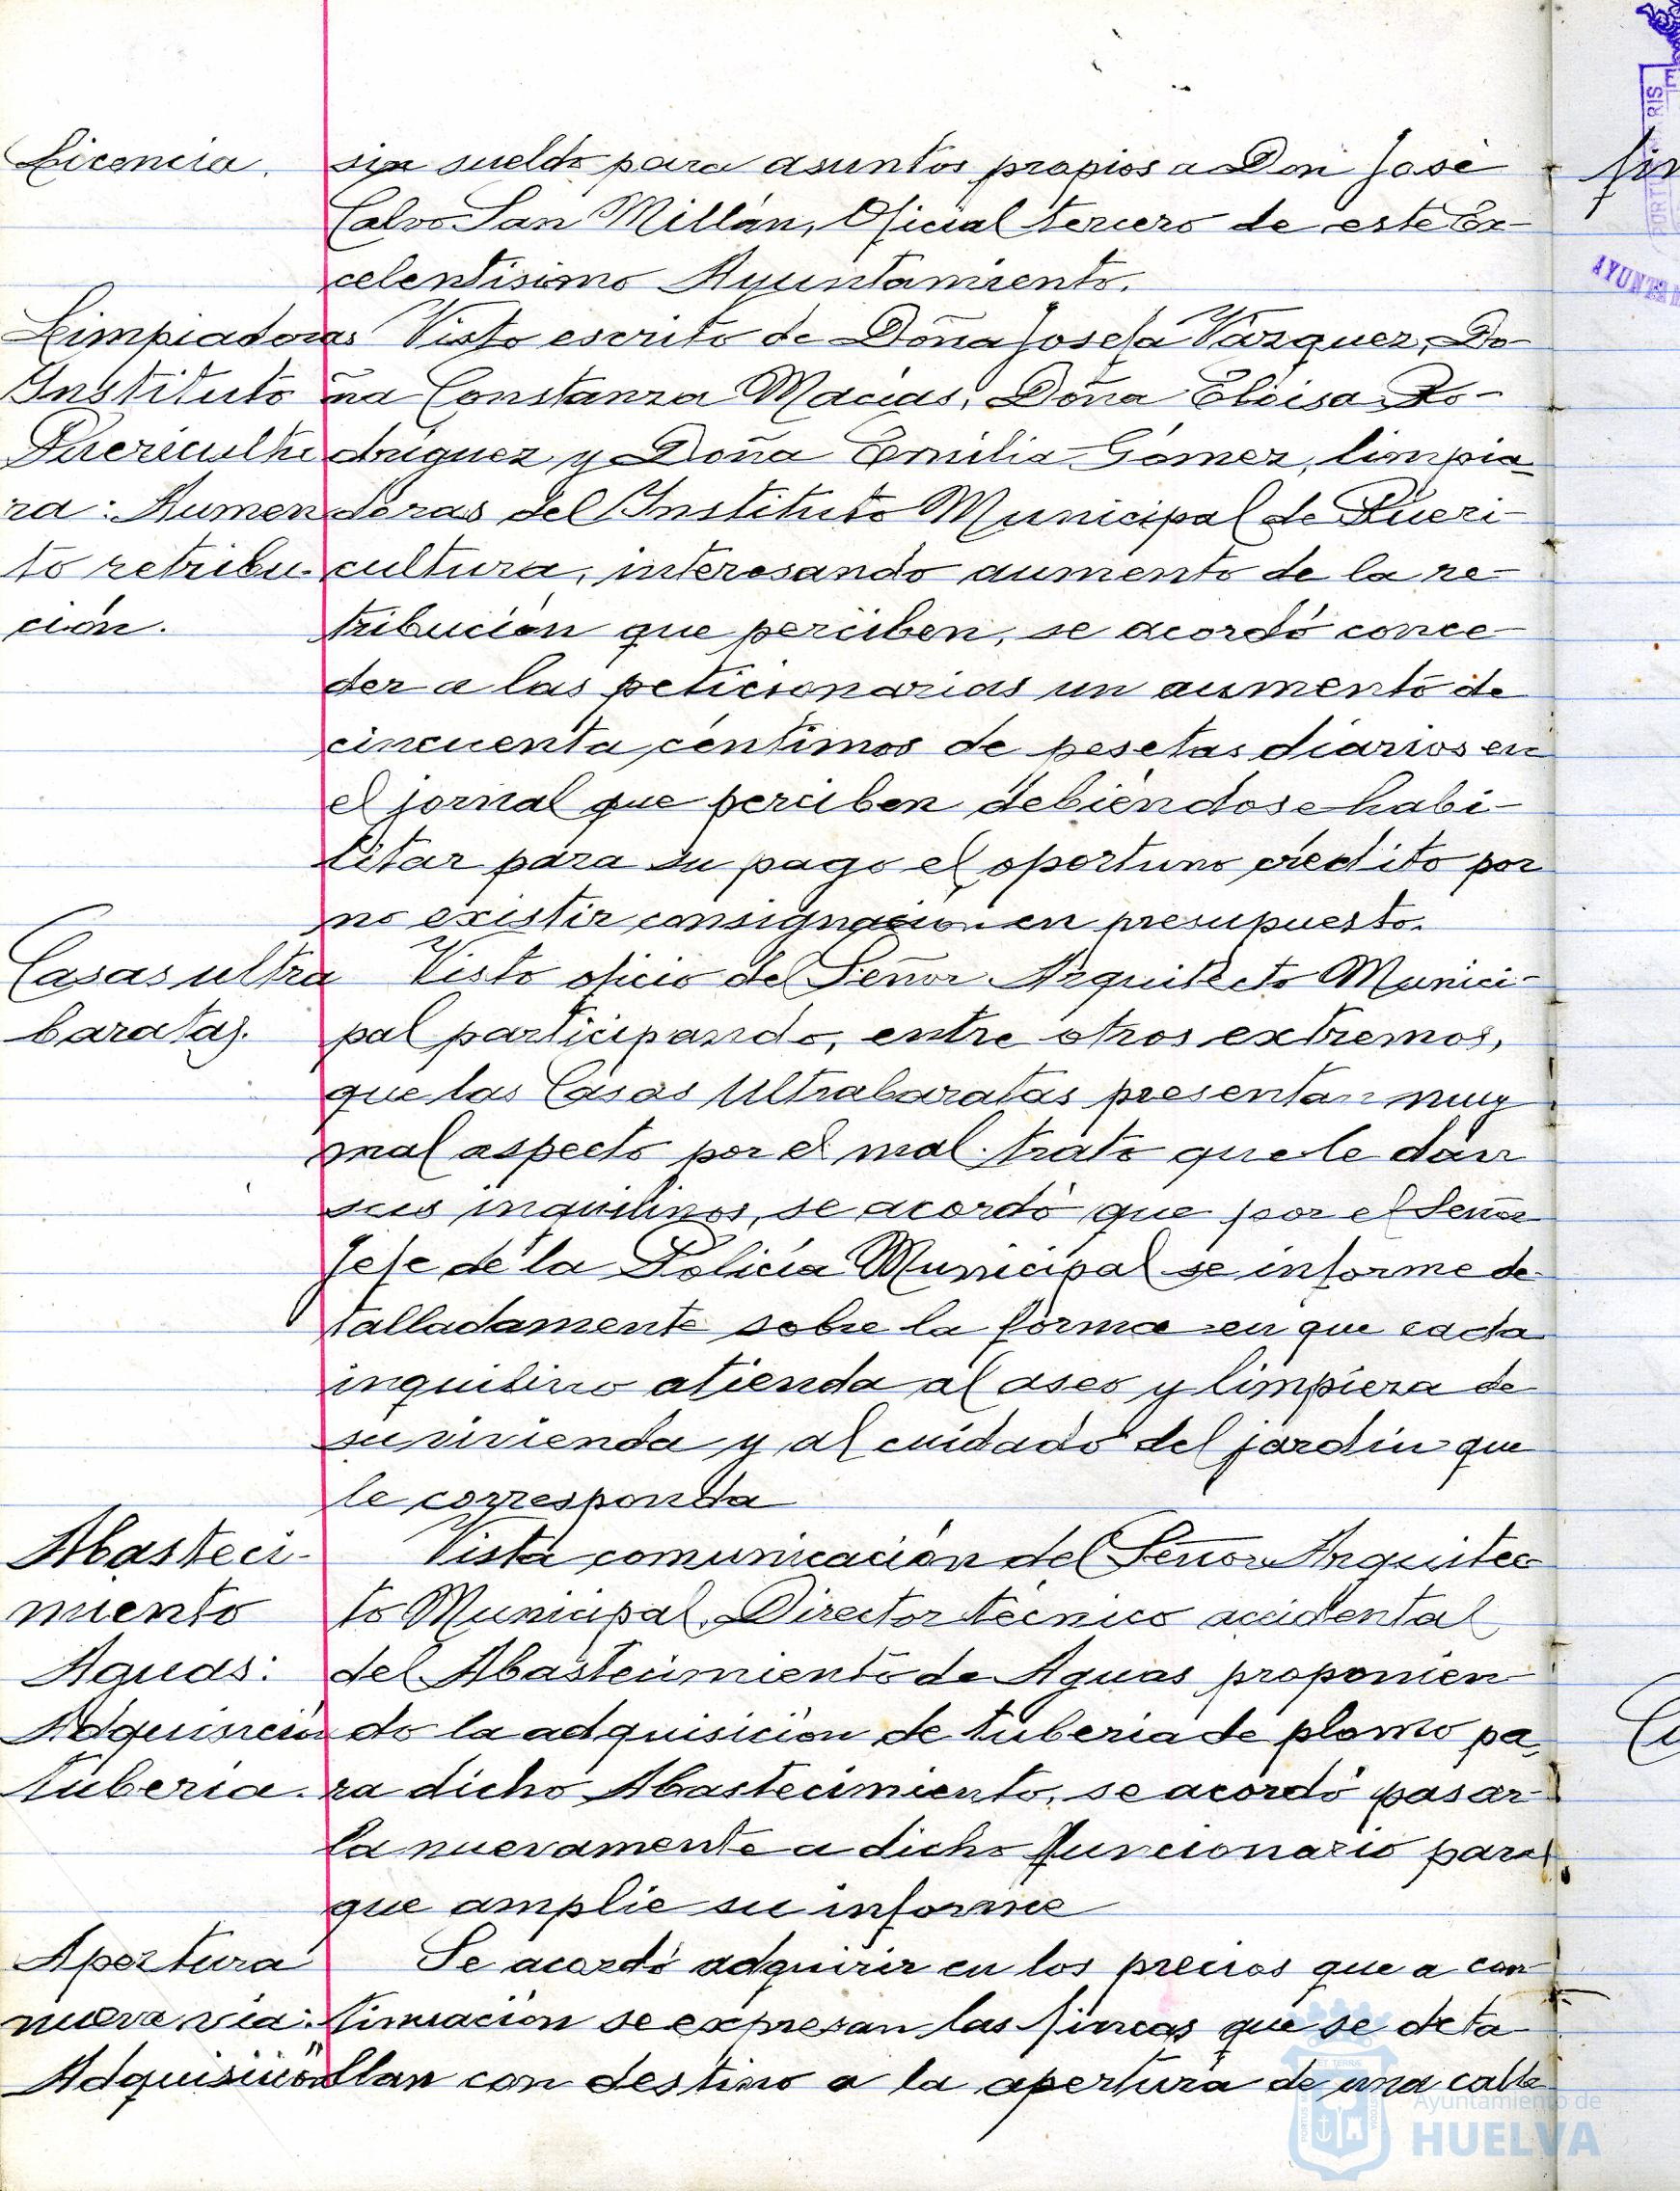 Licencia. sin sueldo para asuntos propios a Don José
Calvo San Millán, Oficial tercero de este Ex-
celentisimo Ayuntamiento.
Limpiadoras Visto escrito de Doña Josefa Vázquez, Do-
Instituto ña Constanza Macías, Doña Eloisa Ro-
Puericultu driguez y Doña Emilia Gómez, limpia
ra: Aumen doras del Instituto Municipal de Pueri-
to retribu- cultura, interesando aumento de la re-
ción. tribución que perciben, se acordó conce-
der a las peticionarias un aumento de
cincuenta céntimos de pesetas diarios en
el jornal que perciben debiéndose habi-
litar para su pago el oportuno crédito por
no existir consignación en presupuesto.
Casas ultra Visto oficio del Señor Arquitecto Munici-
baratas. pal participando, entre otros extremos,
que las Casas Ultrabaratas presentan muy
mal aspecto por el mal trato que le dan
sus inquilinos, se acordó que por el Señor
Jefe de la Policía Municipal se informe de-
talladamente sobre la forma en que cada
inquilino atienda al aseo y limpieza de
su vivienda y al cuidado del jardín que
le corresponda
Abasteci- Vista comunicación del Señor Arquitec
miento to Municipal, Director técnico accidental
Aguas: del Abastecimiento de Aguas proponien
Adquisición do la adquisición de tubería de plomo pa
tubería. ra dicho Abastecimiento, se acordó pasar-
la nuevamente a dicho funcionario para
que amplie su informe
Apertura Se acordó adquirir en los precios que a con
nueva vía: tinuación se expresan las fincas que se deta
Adquisición llan con destino a la apertura de una calle
Ayuntamiento de
HUELVA